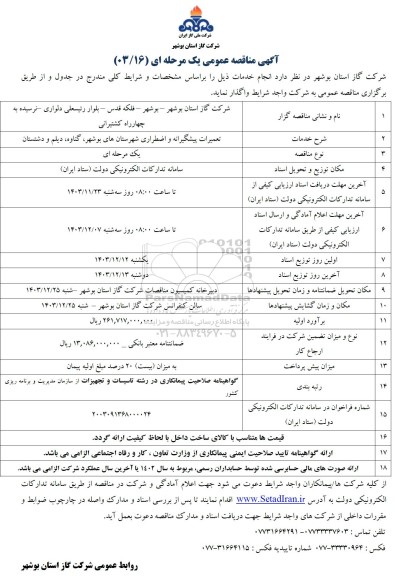 شرکت ملی گاز ایران
شرکت گاز استان بوشهر
آگهی مناقصه عمومی یک مرحله ای (۰۳/۱۶)
شرکت گاز استان بوشهر در نظر دارد انجام خدمات ذیل را براساس مشخصات و شرایط کلی مندرج در جدول و از طریق
برگزاری مناقصه عمومی به شرکت واجد شرایط واگذار نماید.
۱ نام و نشانی مناقصه گزار شرکت گاز استان بوشهر – بوشهر – فلکه قدس – بلوار رئیسعلی دلواری – نرسیده به
چهارراه کشتیرانی
۲ شرح خدمات تعمیرات پیشگیرانه و اضطراری شهرستان های بوشهر، گناوه، دیلم و دشتستان
۳ نوع مناقصه یک مرحله ای
۴ مکان توزیع و تحویل اسناد سامانه تدارکات الکترونیکی دولت (ستاد ایران)
۵ آخرین مهلت دریافت اسناد ارزیابی کیفی از
سامانه تدارکات الکترونیکی دولت (ستاد ایران) تا ساعت ۰۸:۰۰ روز سه‌شنبه ۱۴۰۳/۱۱/۲۳
۶ آخرین مهلت اعلام آمادگی و ارسال اسناد
ارزیابی کیفی از طریق سامانه تدارکات
الکترونیکی دولت (ستاد ایران) تا ساعت ۰۸:۰۰ روز سه‌شنبه ۱۴۰۳/۱۲/۰۷
۷ اولین روز توزیع اسناد یکشنبه ۱۴۰۳/۱۲/۱۲
۸ آخرین روز توزیع اسناد دوشنبه ۱۴۰۳/۱۲/۱۳
۹ مکان تحویل ضمانتنامه و زمان تحویل پیشنهادها دبیرخانه کمیسیون مناقصات شرکت گاز استان بوشهر – شنبه ۱۴۰۳/۱۲/۲۵
۱۰ مکان و زمان گشایش پیشنهادها سالن کنفرانس شرکت گاز استان بوشهر – شنبه ۱۴۰۳/۱۲/۲۵
۱۱ برآورد اولیه ۲۶۱,۷۱۷,۰۰۰,۰۰۰ ریال
۱۲ نوع و میزان تضمین شرکت در فرایند
ارجاع کار ضمانتنامه معتبر بانکی _ ۱۳,۰۸۶,۰۰۰,۰۰۰ ریال
۱۳ میزان پیش پرداخت به میزان (بیست) ۲۰ درصد مبلغ اولیه پیمان
۱۴ رتبه بندی گواهینامه صلاحیت پیمانکاری در رشته تاسیسات و تجهیزات از سازمان مدیریت و برنامه ریزی
کشور
۱۵ شماره فراخوان در سامانه تدارکات الکترونیکی
دولت (ستاد ایران) ۲۰۰۳۰۹۱۳۶۸۰۰۰۰۲۴
۱۶ قیمت ها متناسب با کالای ساخت داخل با لحاظ کیفیت ارائه گردد.
۱۷ ارائه گواهینامه تایید صلاحیت ایمنی پیمانکاری از وزارت تعاون ، کار و رفاه اجتماعی الزامی می باشد.
۱۸ ارائه صورت های مالی حسابرسی شده توسط حسابداران رسمی، مربوط به سال ۱۴۰۲ یا آخرین سال عملکرد شرکت الزامی می باشد.
از کلیه شرکت ها/پیمانکاران واجد شرایط دعوت می شود جهت اعلام آمادگی و شرکت در مناقصه از طریق سامانه تدارکات
الکترونیکی دولت به آدرس www.SetadIran.ir اقدام نمایند تا پس از بررسی اسناد و مدارک واصله در چارچوب ضوابط و
مقررات داخلی از شرکت های واجد شرایط جهت دریافت اسناد و مدارک مناقصه دعوت بعمل آید.
تلفن تماس : ۰۷۷۳۳۳۳۷۶۰۳- ۰۷۷۳۱۶۶۴۲۹۱
فکس : ۳۳۳۳۰۹۶۴-۰۷۷ شماره تاییدیه فکس : ۳۱۶۶۴۱۱۵-۰۷۷
روابط عمومی شرکت گاز استان بوشهر